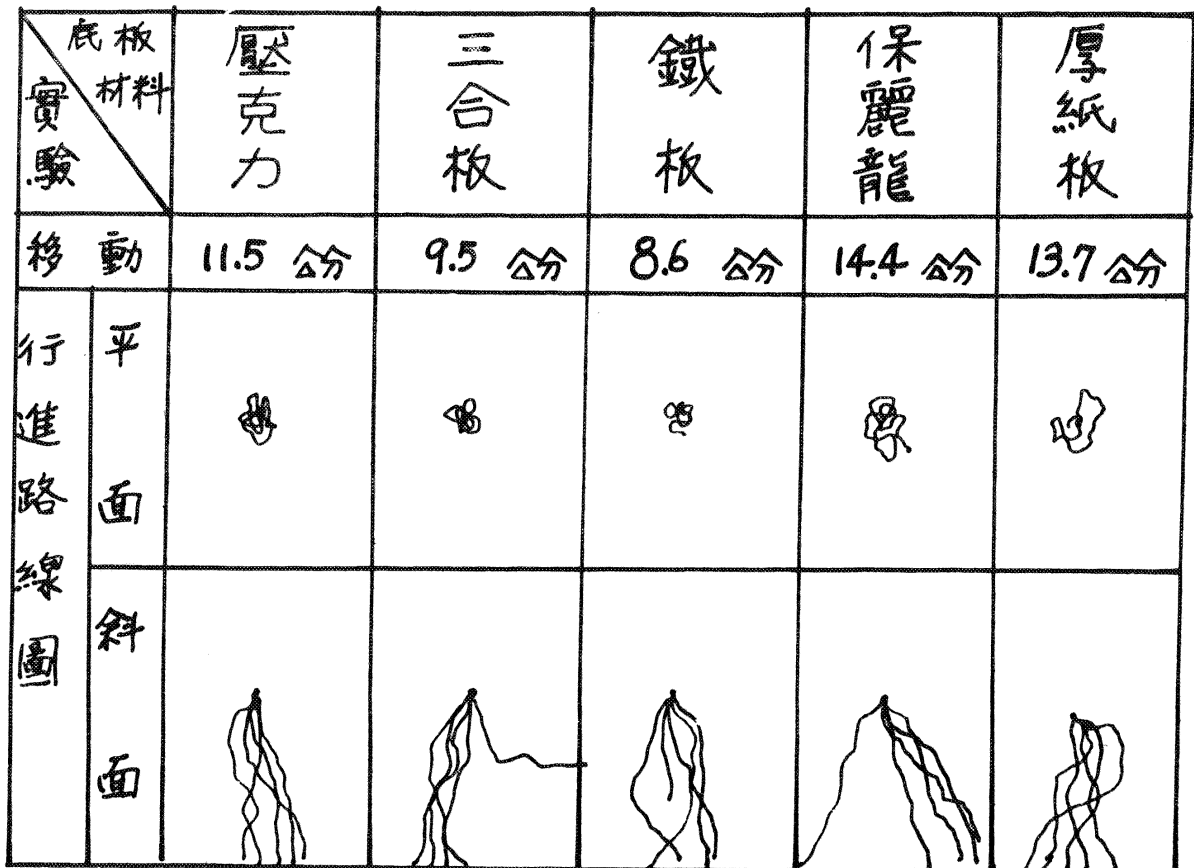 底板
材料
實驗
壓克力
三合板
鐵板
保麗龍
厚紙板
移動
11.5 公分
9.5 公分
8.6 公分
14.4 公分
13.7 公分
行進路線圖
平面
斜面